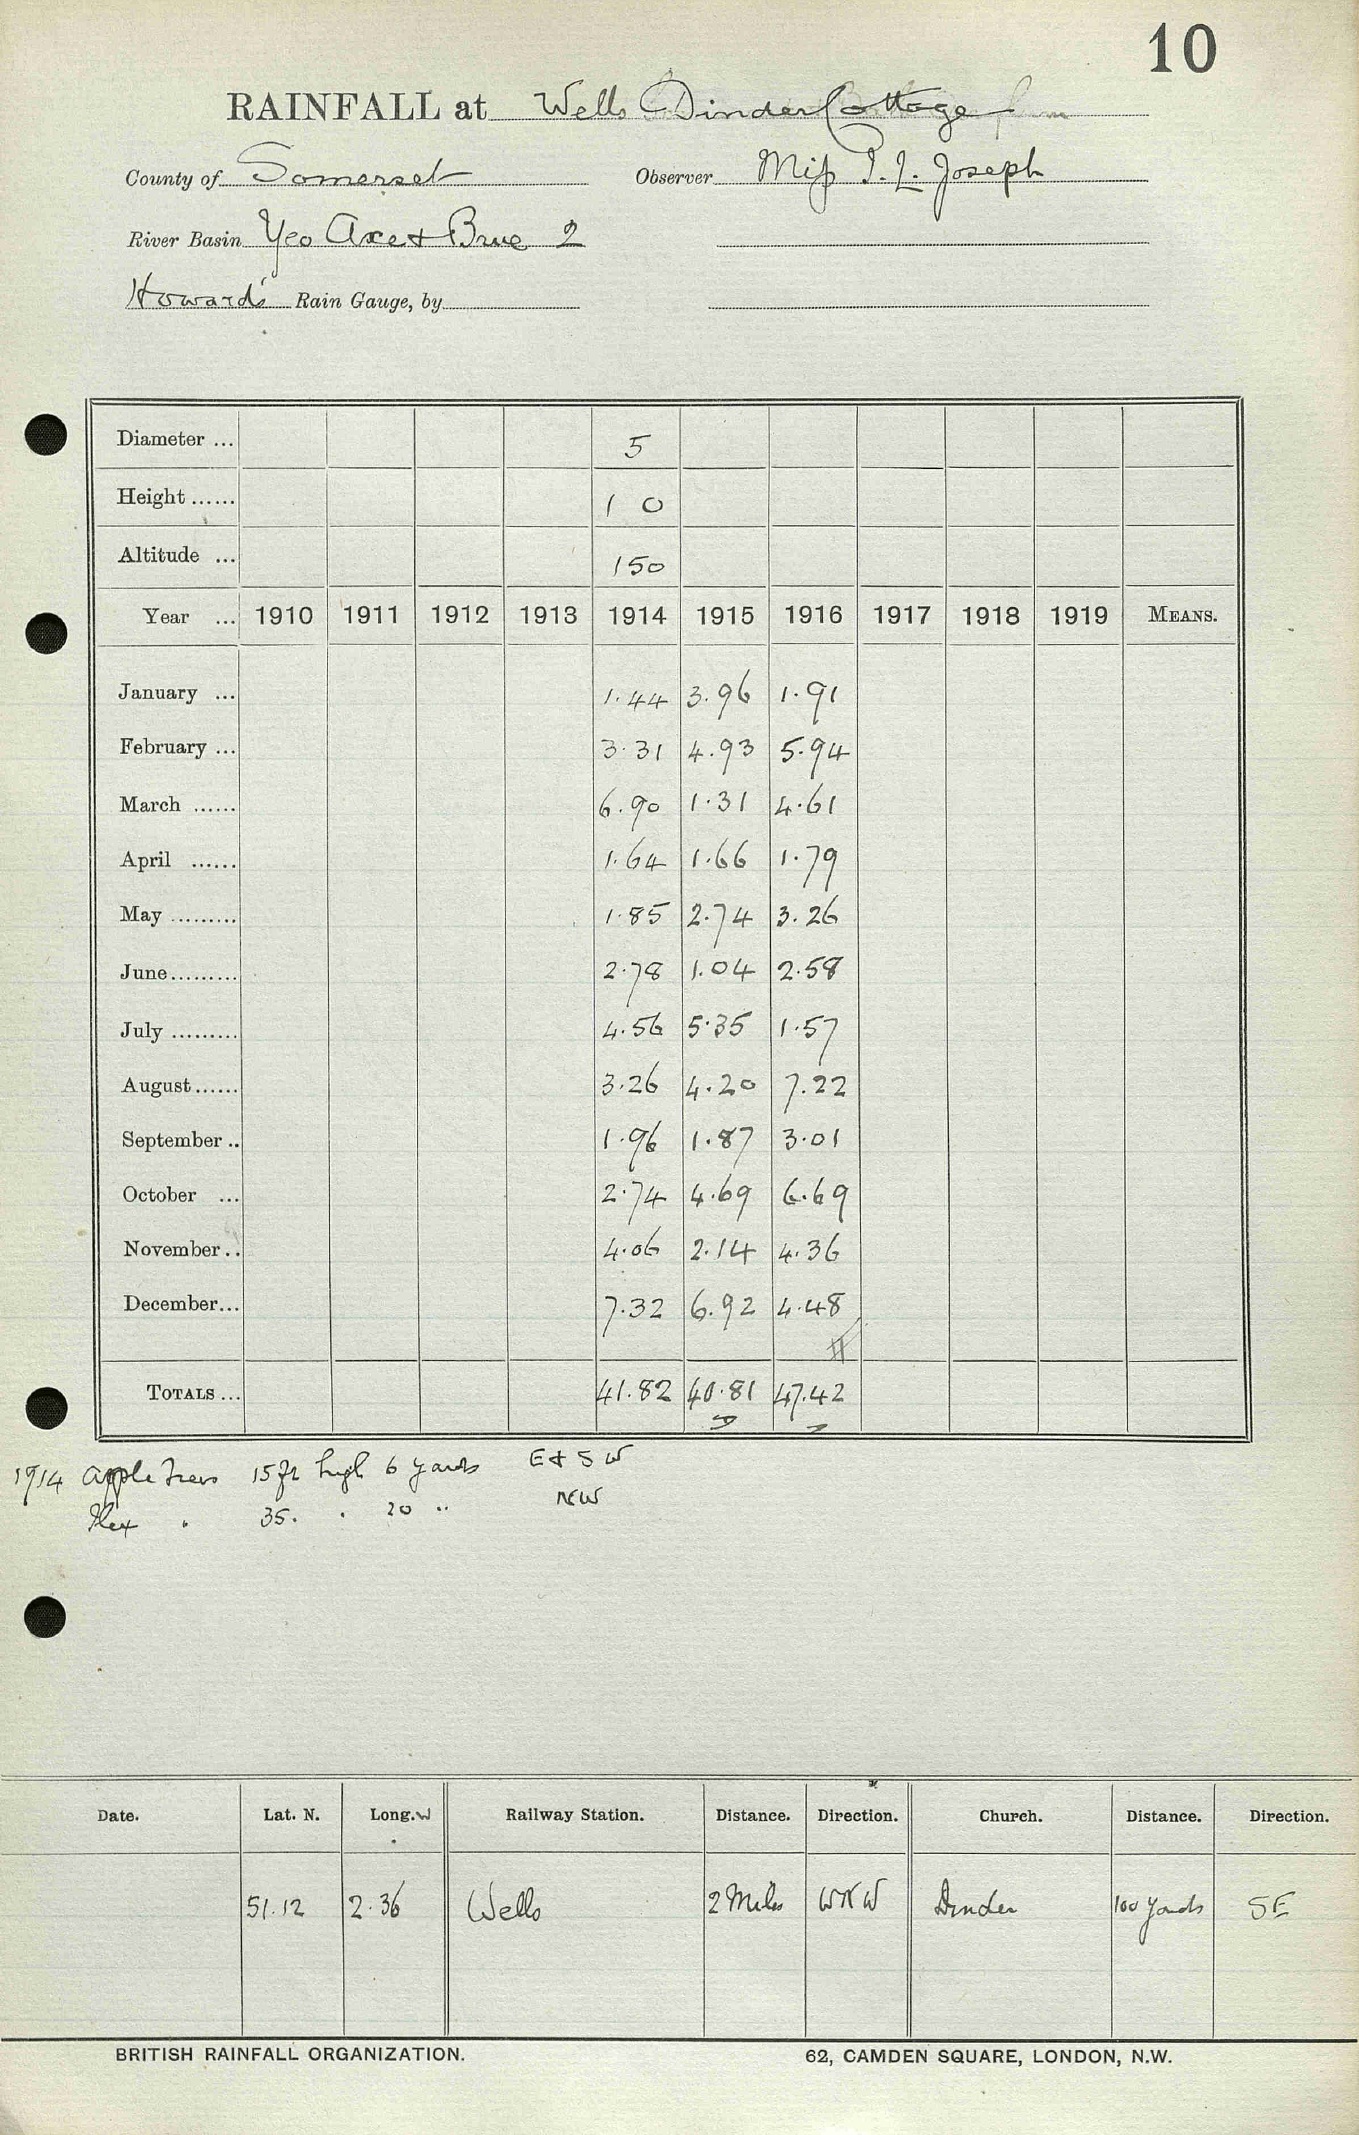 10
RAINFALL at Wells Dinder Cottage
County of Somerset Observer Miss P. L. Joseph
River Basin Yeo Axe & Brue 2
Howard's Rain Gauge, by
Diameter ... 5
Height ...... 1 0
Altitude ... 150
Year ... 1910 1911 1912 1913 1914 1915 1916 1917 1918 1919 MEANS.
January ... 1.44 3.96 1.91
February ... 3.31 4.93 5.94
March ...... 6.90 1.31 4.61
April ...... 1.64 1.66 1.79
May ......... 1.85 2.74 3.26
June......... 2.78 1.04 2.58
July ......... 4.56 5.35 1.57
August...... 3.26 4.20 7.22
September .. 1.96 1.87 3.01
October ... 2.74 4.69 6.69
November .. 4.06 2.14 4.36
December... 7.32 6.92 4.48
TOTALS ... 41.82 40.81 47.42
1914 Apple Trees 15 ft high 6 yards E & SW
Ilex " 35. . 20 " NW
Date. Lat. N. Long. W Railway Station. Distance. Direction. Church. Distance. Direction.
51.12 2.36 Wells 2 Miles WNW Dinder 100 yards SE
BRITISH RAINFALL ORGANIZATION. 62, CAMDEN SQUARE, LONDON, N.W.